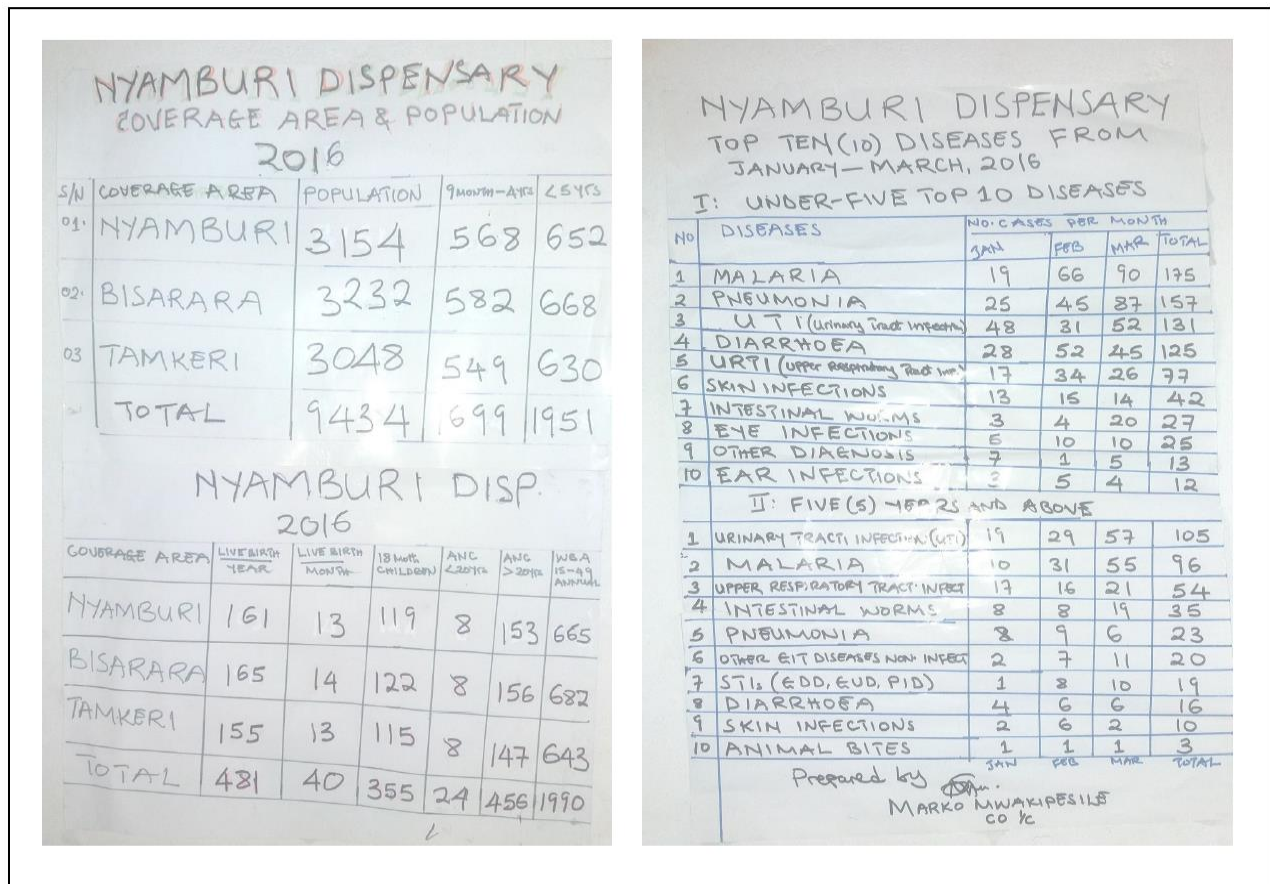 NYAMBURI DISPENSARY
COVERAGE AREA & POPULATION
2016
S/N COVERAGE AREA POPULATION 9MONTH-4YRS <5YRS
01. NYAMBURI 3154 568 652
02. BISARARA 3232 582 668
03 TAMKERI 3048 549 630
TOTAL 9434 1699 1951
NYAMBURI DISP.
2016
COVERAGE AREA LIVE BIRTH YEAR LIVE BIRTH MONTH 18 Moth CHILDREN ANC <20YRS ANC >20YRS WBA 15-49 ANNUAL
NYAMBURI 161 13 119 8 153 665
BISARARA 165 14 122 8 156 682
TAMKERI 155 13 115 8 147 643
TOTAL 481 40 355 24 456 1990
NYAMBURI DISPENSARY
TOP TEN (10) DISEASES FROM
JANUARY - MARCH, 2016
I: UNDER-FIVE TOP 10 DISEASES
NO DISEASES NO. CASES PER MONTH
JAN FEB MAR TOTAL
1 MALARIA 19 66 90 175
2 PNEUMONIA 25 45 87 157
3 UTI (Urinary Tract Infection) 48 31 52 131
4 DIARRHOEA 28 52 45 125
5 URTI (Upper Respiratory Tract Inf.) 17 34 26 77
6 SKIN INFECTIONS 13 15 14 42
7 INTESTINAL WORMS 3 4 20 27
8 EYE INFECTIONS 5 10 10 25
9 OTHER DIAGNOSIS 7 1 5 13
10 EAR INFECTIONS 5 4 12
II: FIVE (5) YEARS AND ABOVE
1 URINARY TRACTI INFECTION (UTI) 19 29 57 105
2 MALARIA 10 31 55 96
3 UPPER RESPIRATORY TRACT INFECT 17 16 21 54
4 INTESTINAL WORMS 8 8 19 35
5 PNEUMONIA 8 9 6 23
6 OTHER GIT DISEASES NON-INFECT 2 7 11 20
7 STIs (GDD, GUD, PID) 1 8 10 19
8 DIARRHOEA 4 6 6 16
9 SKIN INFECTIONS 2 6 2 10
10 ANIMAL BITES 1 1 1 3
JAN FEB MAR TOTAL
Prepared by
MARKO MWAKIPESILE
CO I/C